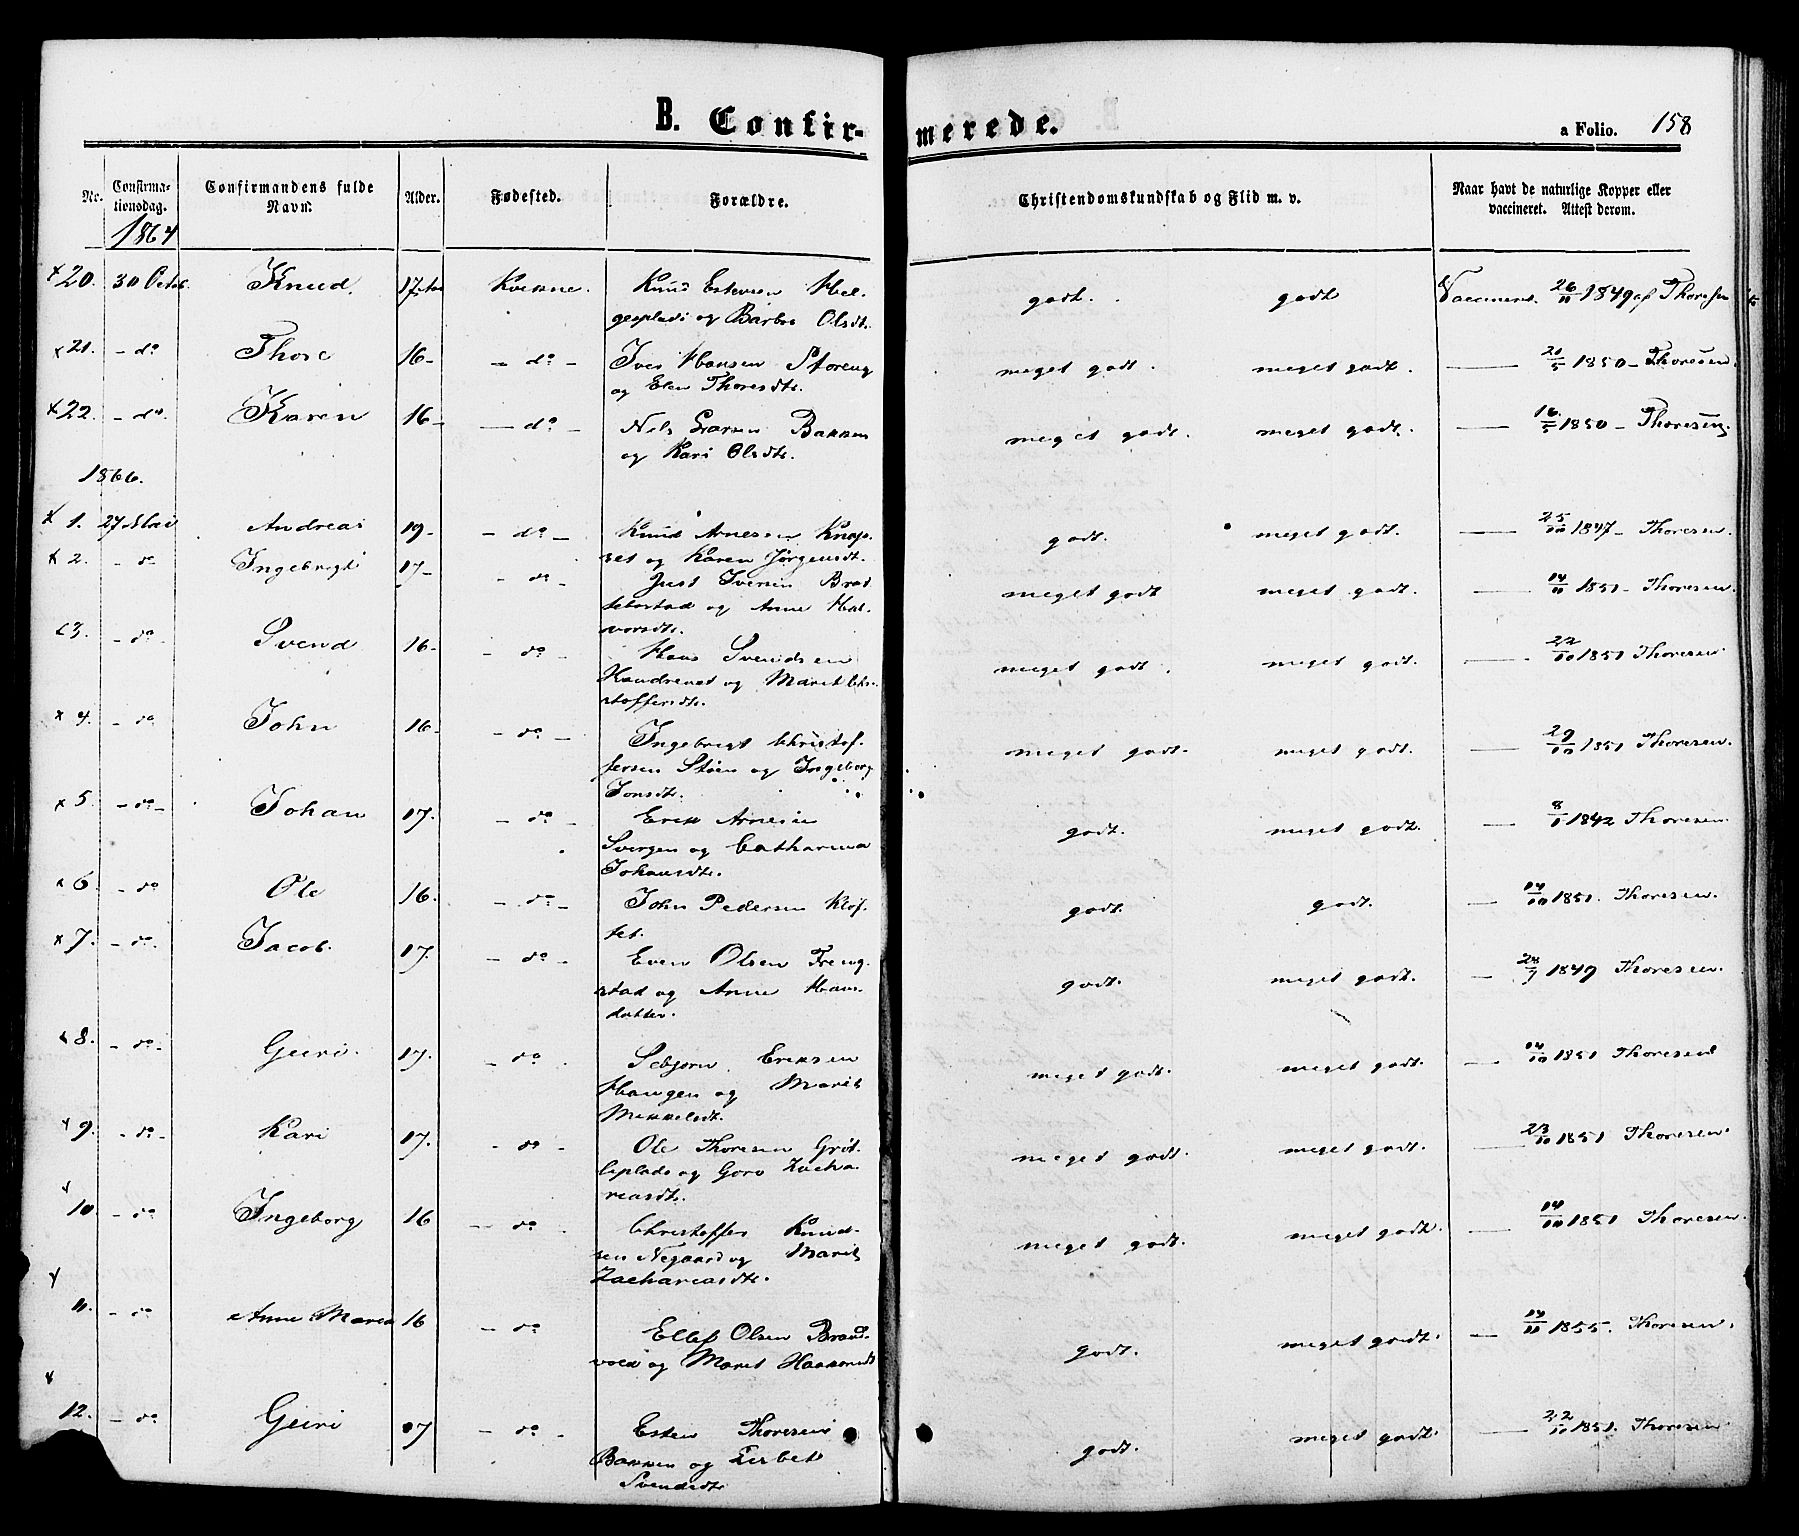 B. Confirmerede.
a Folio. 158
Nr. Confirmationsdag. Confirmandens fulde Navn. Alder. Fødested. Forældre. Christendomskundskab og Flid m. v. Naar havt de naturlige Kopper eller vaccineret. Attest derom.
1864
20. 30 Octob. Knud. 17 Kvikne. Knud Estensen Hel- godt. godt Vaccineret. 26/11 1849 af Thoresen
geplads og Barbro Olsdt.
21. - do Thore 16- - do - Iver Hansen Storeng meget godt. meget godt. 21/5 1850 - Thoresen.
og Elen Thoresdt.
22. - do. Karen 16- - do - Nels Larsen Bakken meget godt. meget godt. 16/5 1850 - Thoresen.
og Kari Olsdt.
1866.
1. 27 Mai Andreas 19- - do - Knud Arnesen godt. meget godt. 25/10 1847 - Thoresen.
og Karen Jörgensdt.
2. - do Ingebrigt 17- - do - Just Iversen meget godt meget godt. 14/10 1851 - Thoresen.
og Anne Hal-
vorsdt.
3. - do - Svend 16- - do - Hans Svendsen meget godt. meget godt. 22/10 1851 Thoresen.
og Marit Chri-
stoffersdt.
4. - do John 16- - do - Ingebrigt Christof- meget godt. meget godt. 29/10 1851 Thoresen.
fersen Stöen og Ingeborg
Jonsdt.
5. - do - Johan 17. - do - Erik Arnesen godt. meget godt. 8/6 1842 Thoresen
og Catharina
Johansdt.
6. - do Ole 16. - do - John Pedersen Klöf- godt. godt. 14/10 1851. Thoresen.
tet.
7. - do - Jacob. 17. - do - Even Olsen Freng- godt. meget godt. 28/7 1849 Thoresen.
stad og Anne Hans-
datter.
8. - do - Guri. 17. - do Sebjörn Eriksen meget godt. meget godt. 14/10 1851 Thoresen
Haugen og Marit
Mikkelsdt.
9. - do - Kari 17. - do - Ole Thoresen Gröt- meget godt. meget godt. 23/10 1851 Thoresen.
liplads og Goro Zacha-
riasdt.
10. - do Ingeborg 16 - do - Christoffer Knud- meget godt. meget godt. 14/10 1851 Thoresen.
sen Negaard og Marit
Zachariasdt.
11. - do - Anne Maria 16 - do Ellef Olsen Brand- godt. meget godt. 14/10 1855. Thoresen.
vold og Marit Haakonsdt
12. - do Guri 17 - do - Esten Thoresen godt. meget godt. 22/10 1851. Thoresen
Bakken og Lisbet
Svendsdt.